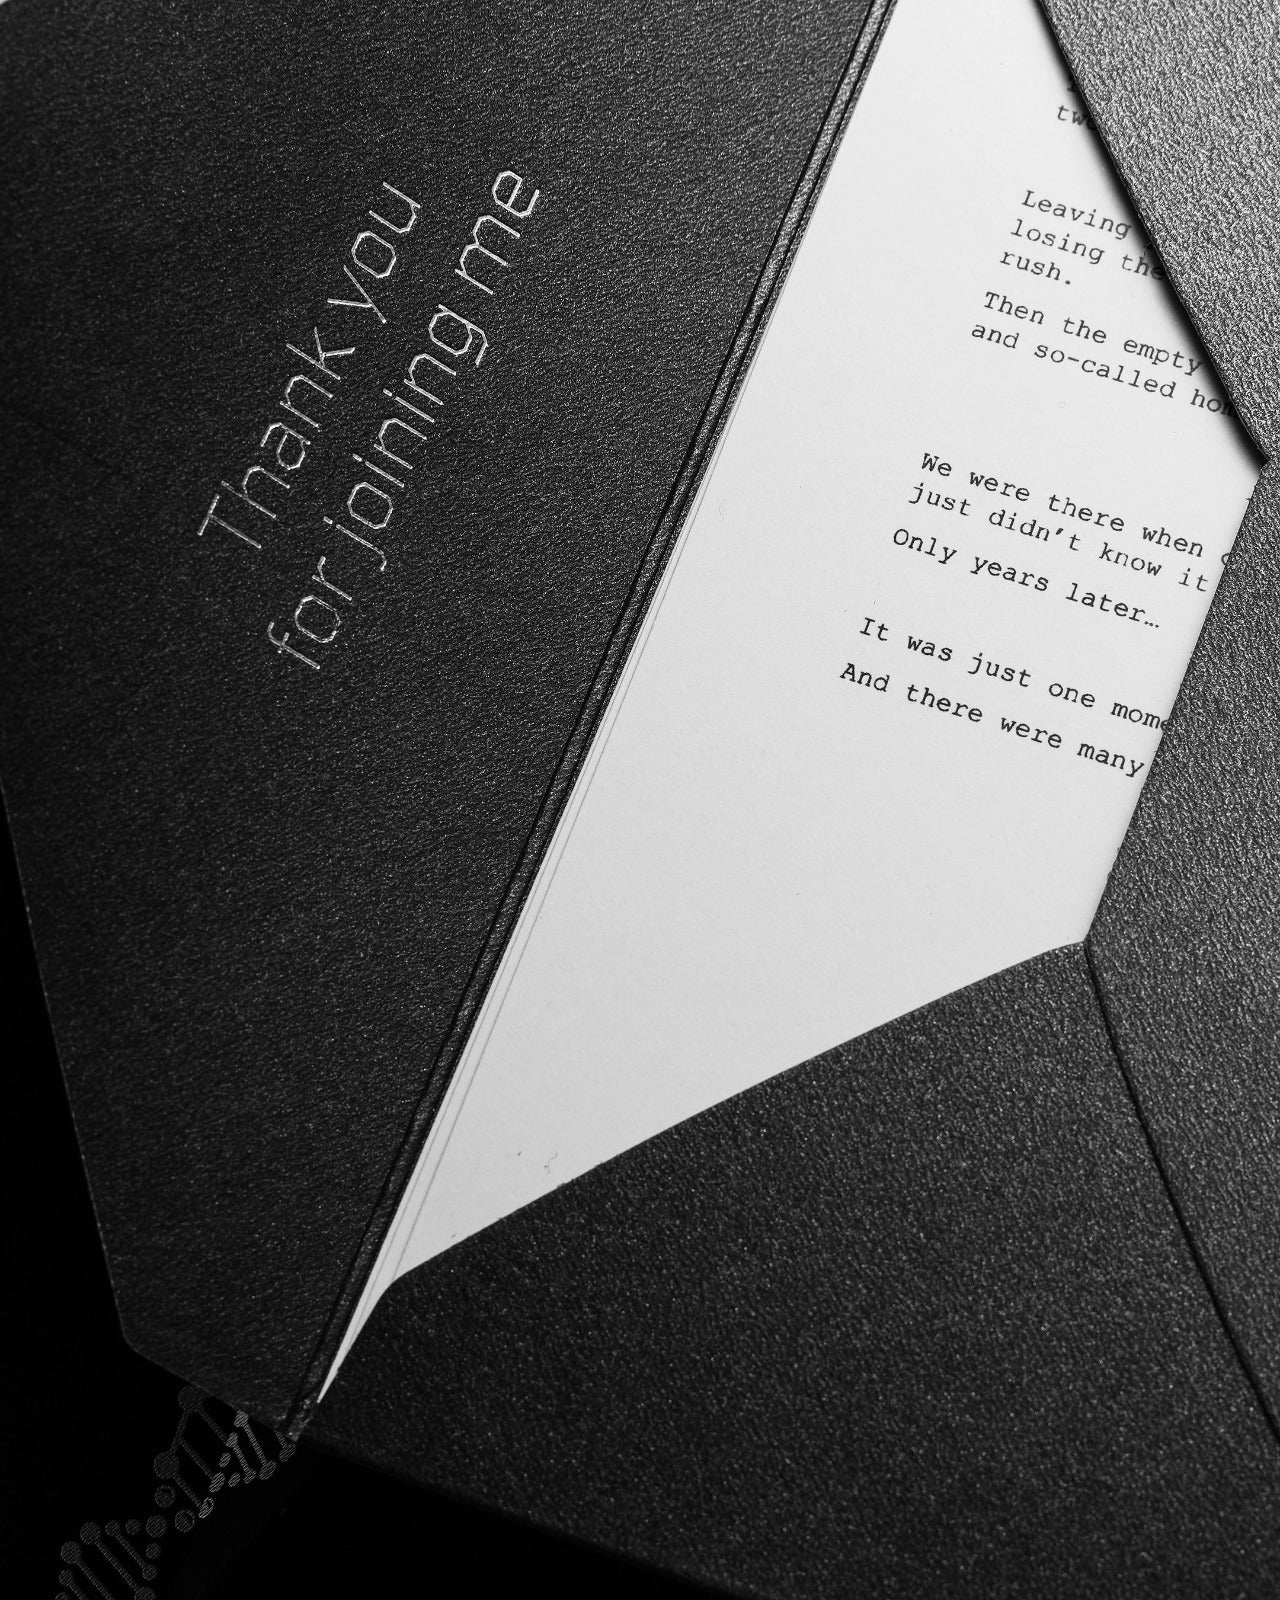 Thank you
for joining me
Leaving
losing the
rush.
Then the empty
and so-called
We were there when
just didn't know it
Only years later…
It was just one
And there were many